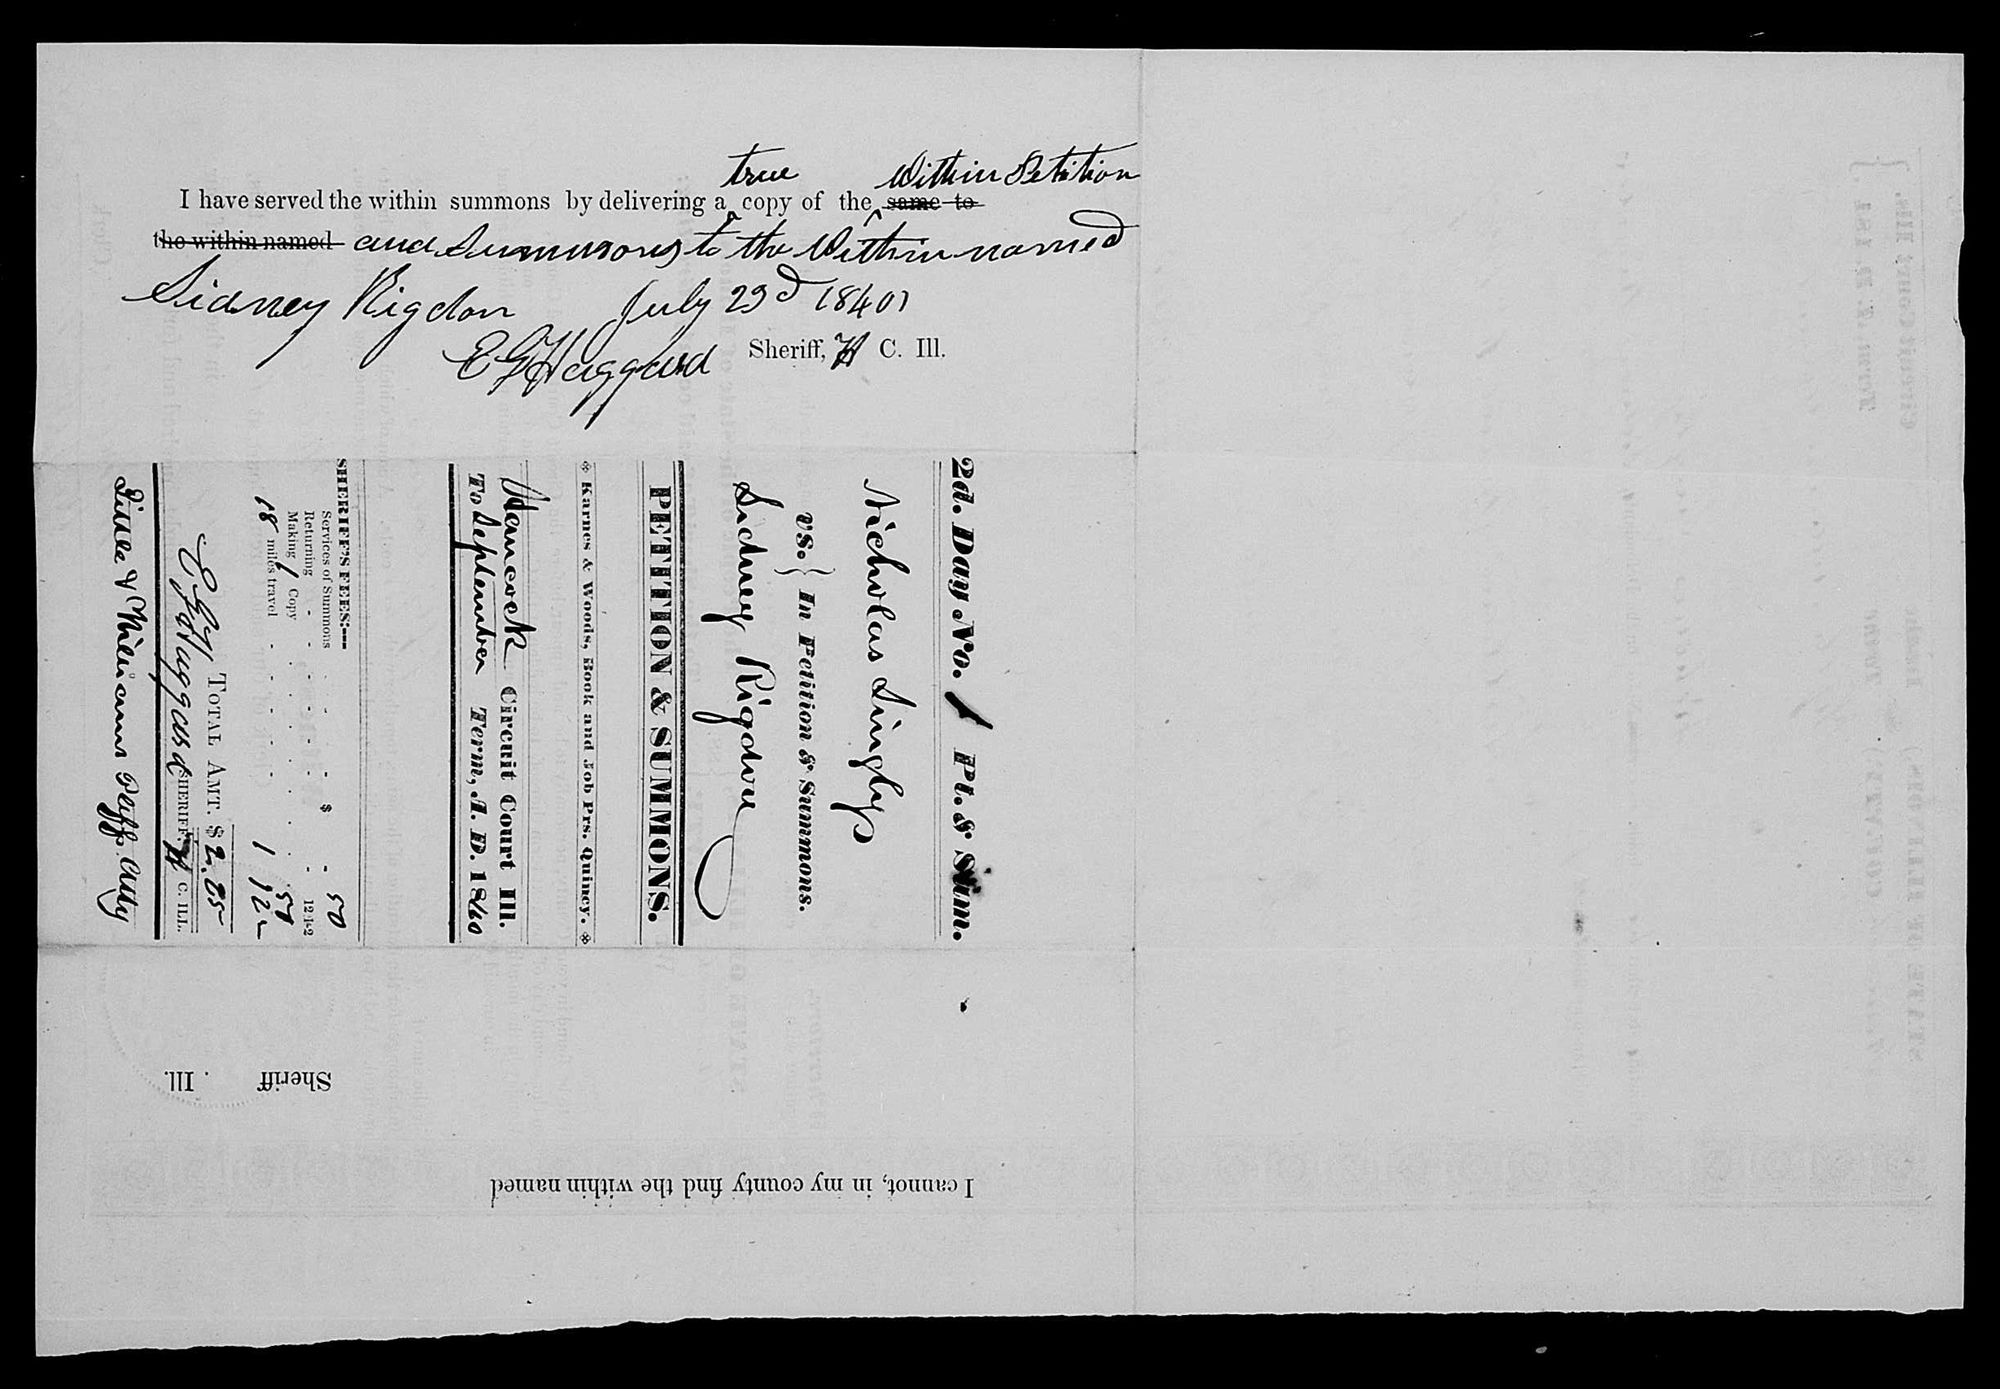 true Within Petition
I have served the within summons by delivering a copy of the same to
the within named and Summons to the Within named
Sidney Rigdon July 23d 1840
E G Haggard Sheriff, H C. Ill.
2d. Day No. 1 Pt. & Sum.
Nicholas
vs. } In Petition & Summons.
Sidney Rigdon
PETITION & SUMMONS.
Karnes & Woods, Book and Job Prs. Quincy.
Hancock Circuit Court Ill.
To September Term, A. D. 1840
SHERIFF'S FEES:—
Services of Summons - - - $ - 50
Returning - - - - - 12 1-2
Making 1 Copy - - - - 50
18 miles travel - - - -
TOTAL AMT. $
E G Haggard SHERIFF, H C. ILL.
Little & Williams Plffs Atty
Sheriff . Ill.
I cannot, in my county find the within named